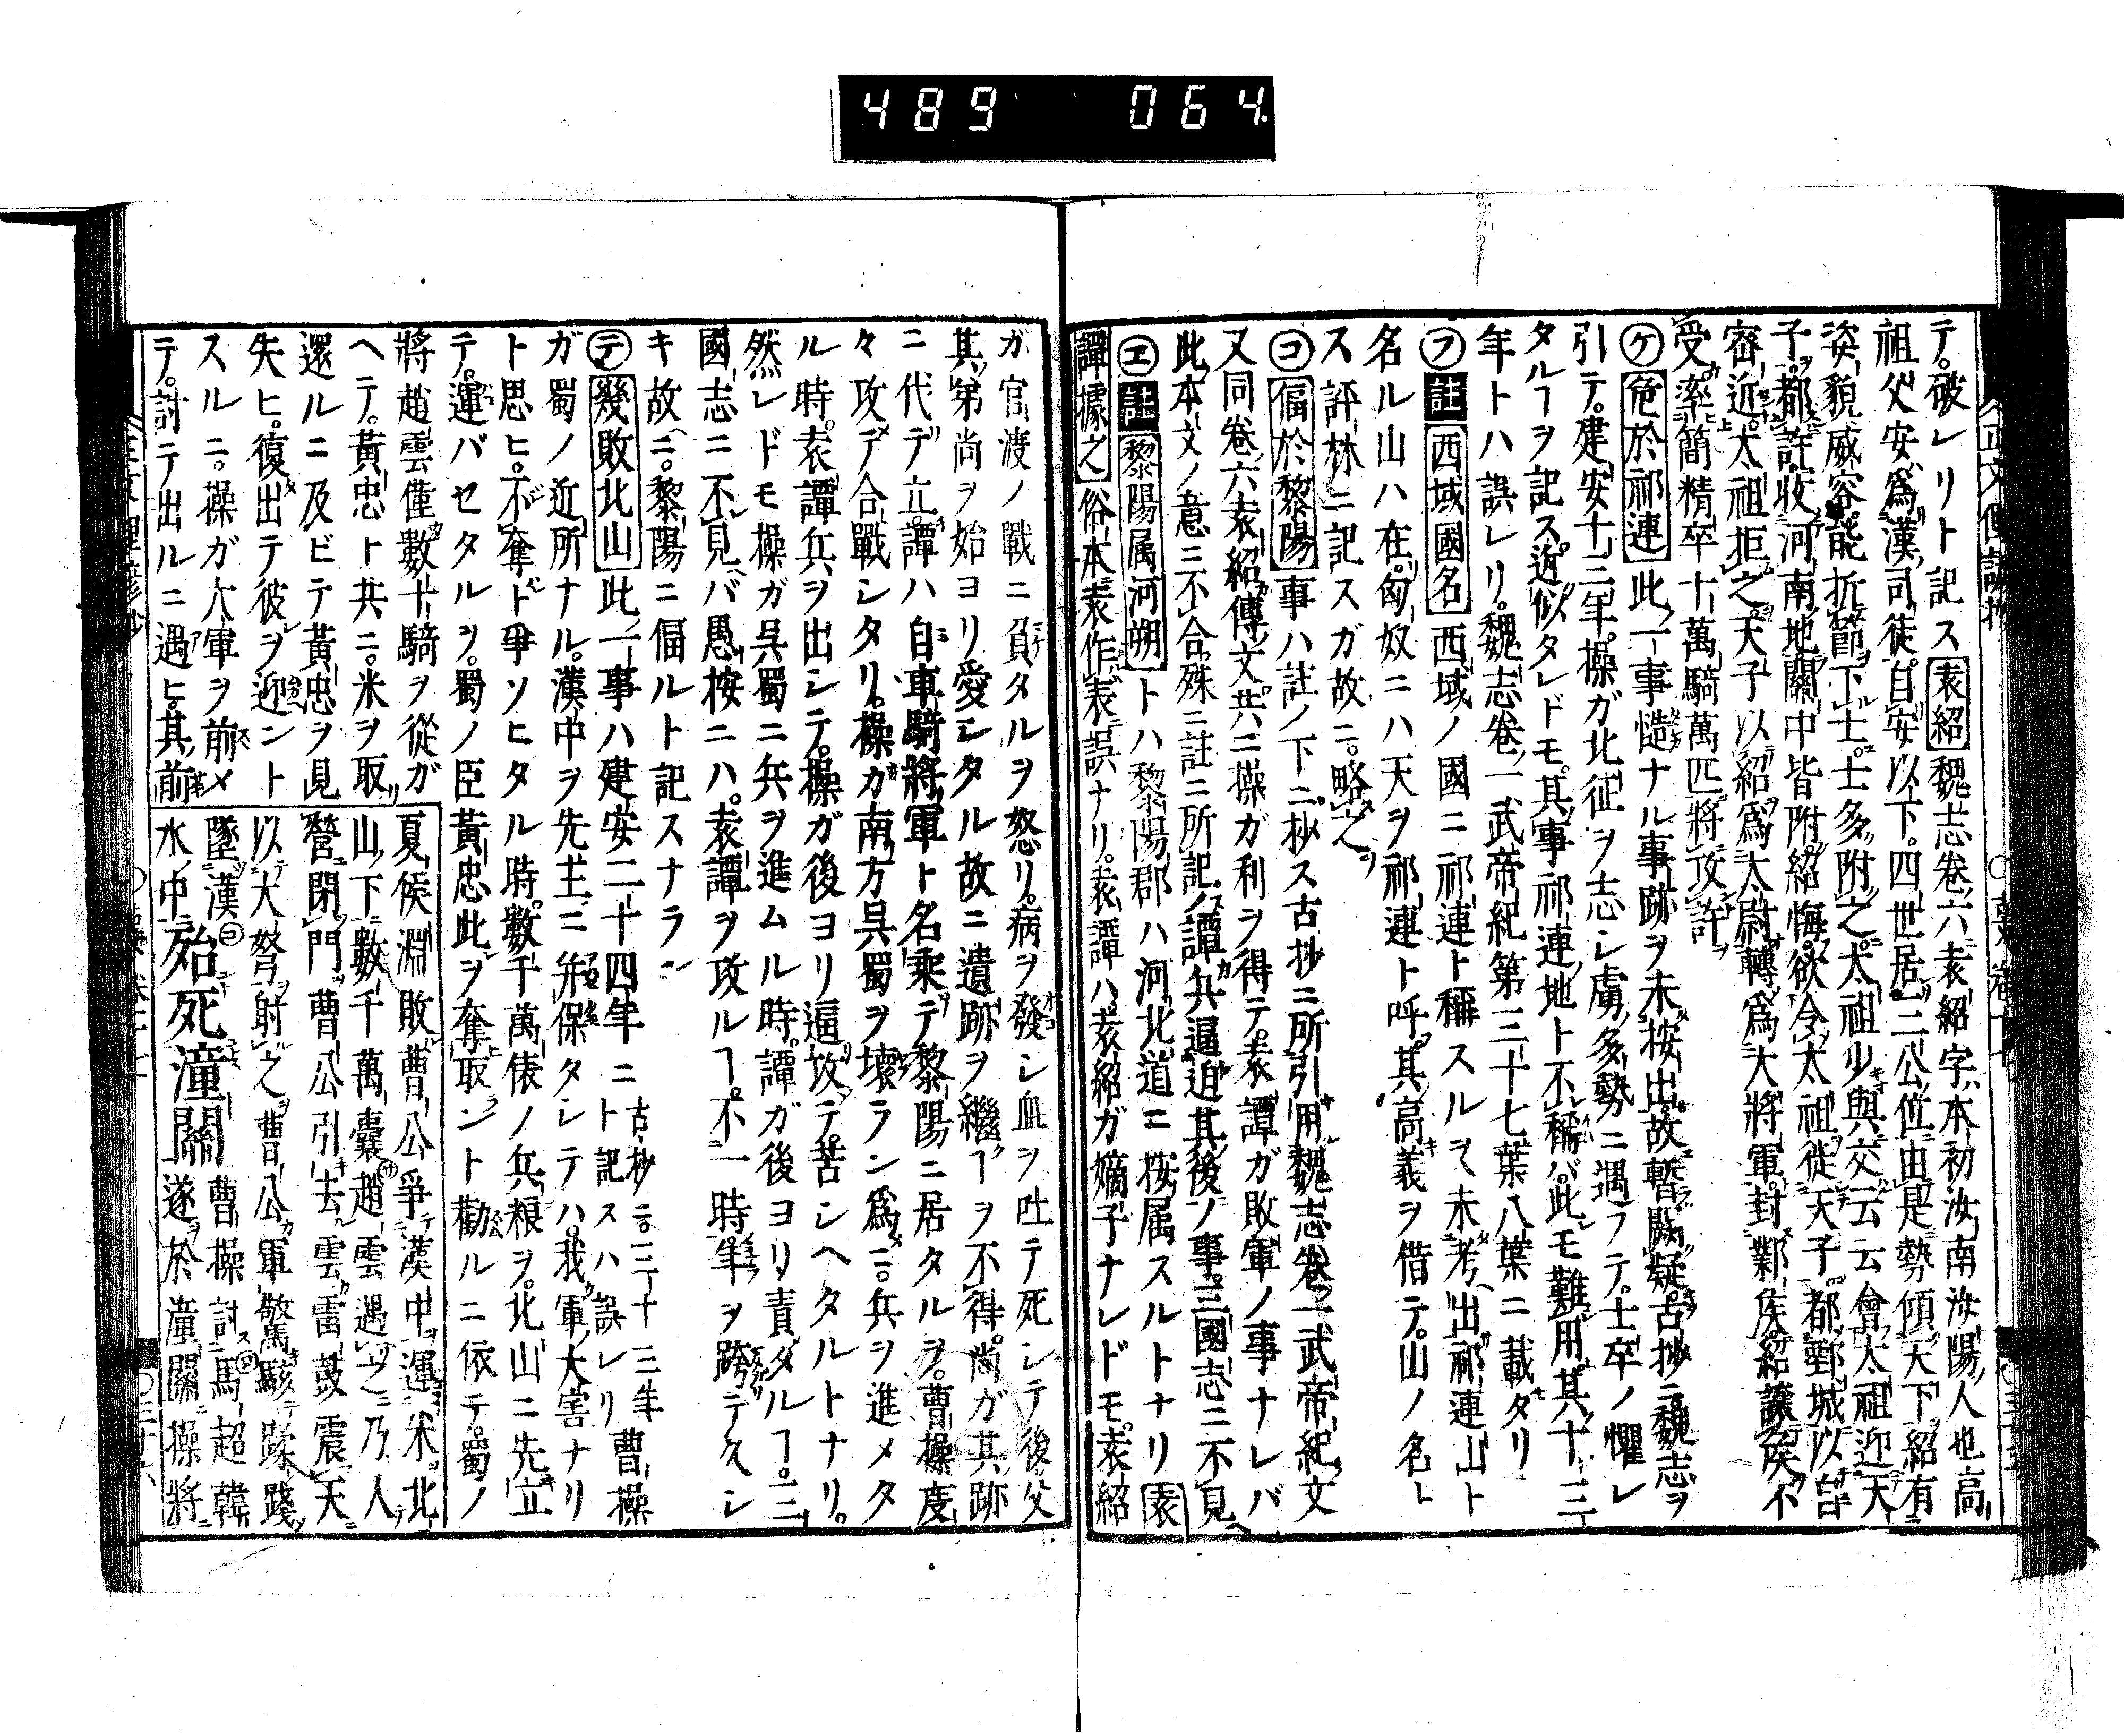 489 064.
テ。破レリト記ス 袁紹 魏志卷六袁紹字本初汝南汝陽人也高
祖父安爲漢司徒。自安以下。四世居三公位由是勢傾天下紹有
姿貌威容能折節下士。士多附之太祖少與交云云會太祖迎天
子。都許收河南地關中皆附紹悔。欲令太祖徙天子。都鄄城以自
密近。太祖拒之。天子以紹爲大尉轉爲大將軍封鄴侯。紹讓侯不
受率簡精卒十萬騎萬匹將攻許
㋘ 危於祁連 此一事慥ナル事跡ヲ未按出。故暫闕疑。古抄ニ魏志ヲ
引テ。建安十二年。操ガ北征ヲ志シ虜多勢ニ遇フテ。士卒ノ懼レ
タルヿヲ記ス。近似タレドモ。其事祁連地ト不稱バ。此モ難用。其十二
年トハ誤レリ。魏志卷一武帝紀第三十七葉八葉ニ載タリ
㋫ 註 西域國名 西域ノ國ニ祁連ト稱スルヲ未考出。祁連山ト
名ル山ハ在。匈奴ニハ天ヲ祁連ト呼。其高義ヲ借テ。山ノ名ト
ス評林ニ記スガ故ニ。略之
㋙ 偪於黎陽 事ハ註ノ下ニ抄ス古抄ニ所引用魏志卷一武帝紀文
又同卷六袁紹傳文。共ニ操ガ利ヲ得テ。袁譚ガ敗軍ノ事ナレバ
此本文ノ意ニ不合。殊ニ註ニ所記ノ譚兵逼迫其後ノ事。三國志ニ不見
㋓ 註 黎陽属河朔 トハ黎陽郡ハ河北道ニ按属スルトナリ 袁
譚據之 俗本袁作表誤ナリ。袁譚ハ。袁紹ガ嫡子ナレドモ。袁紹
ガ官渡ノ戰ニ負タルヲ怒リ。病ヲ發シ血ヲ吐テ死シテ後父
其弟尚ヲ始ヨリ愛シタル故ニ遺跡ヲ繼ヿヲ不得。尚ガ其跡
ニ代テ立。譚ハ自車騎將軍ト名乘テ黎陽ニ居タルヲ。曹操度
々攻テ合戰シタリ。操ガ南方呉蜀ヲ壞ラン爲ニ。兵ヲ進メタ
ル時。袁譚兵ヲ出シテ。操ガ後ヨリ逼攻テ。苦シヘタルトナリ。
然レドモ操ガ呉蜀ニ兵ヲ進ムル時。譚ガ後ヨリ責タルヿ。三
國志ニ不見バ愚按ニハ。袁譚ヲ攻ルヿ。不一時。年ヲ跨テ久シ
キ故ニ。黎陽ニ偪ルト記スナラン
㋢ 幾敗北山 此一事ハ建安二十四年ニ古抄ニ。二十三年ト記スハ誤レリ曹操
ガ蜀ノ近所ナル。漢中ヲ先主ニ并保タレテハ。我軍大害ナリ
ト思ヒ。不奪ト爭ソヒタル時。數千萬俵ノ兵粮ヲ。北山ニ先立
テ。運バセタルヲ。蜀ノ臣黃忠此ヲ奪取ント勸ルニ依テ。蜀ノ
將趙雲僅數十騎ヲ從ガ
ヘテ。黃忠ト共ニ。米ヲ取
還ルニ及ビテ黃忠ヲ見
失ヒ。復出テ彼ヲ迎ント
スルニ。操ガ大軍ヲ前メ
テ。討テ出ルニ遇ヒ。其前
夏侯淵敗曹公爭漢中運米北
山下數千萬囊趙雲遇之乃人
營閉門曹公引去雲雷鼓震天
以大弩射之曹公軍驚駭蹂踐
墜漢水中 殆死潼關 曹操討馬超韓
遂於潼關操將